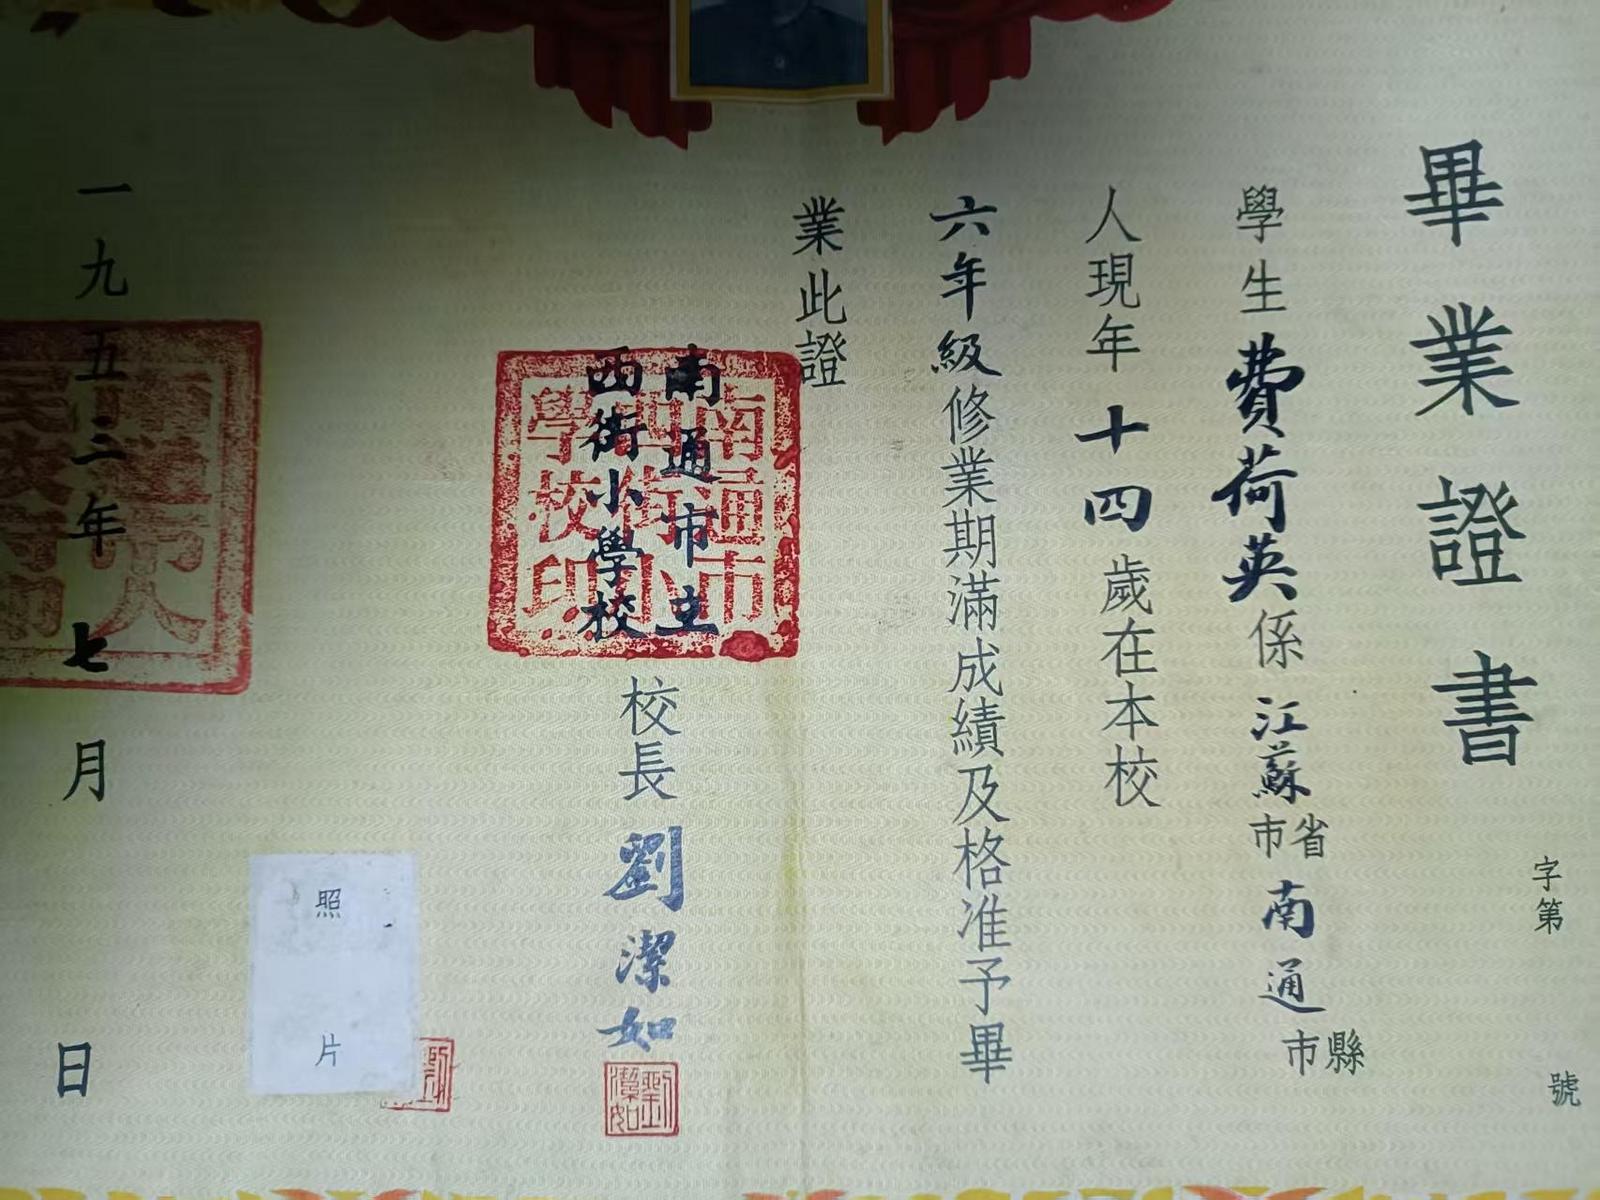 字第 號
畢業證書
學生費荷英係江蘇省市南通縣市
人現年十四歲在本校
六年級修業期滿成績及格准予畢
業此證
南通市立
西街小學校
校長劉潔如
南通市
西街小
學校印
劉潔如
照片
一九五三年七月 日